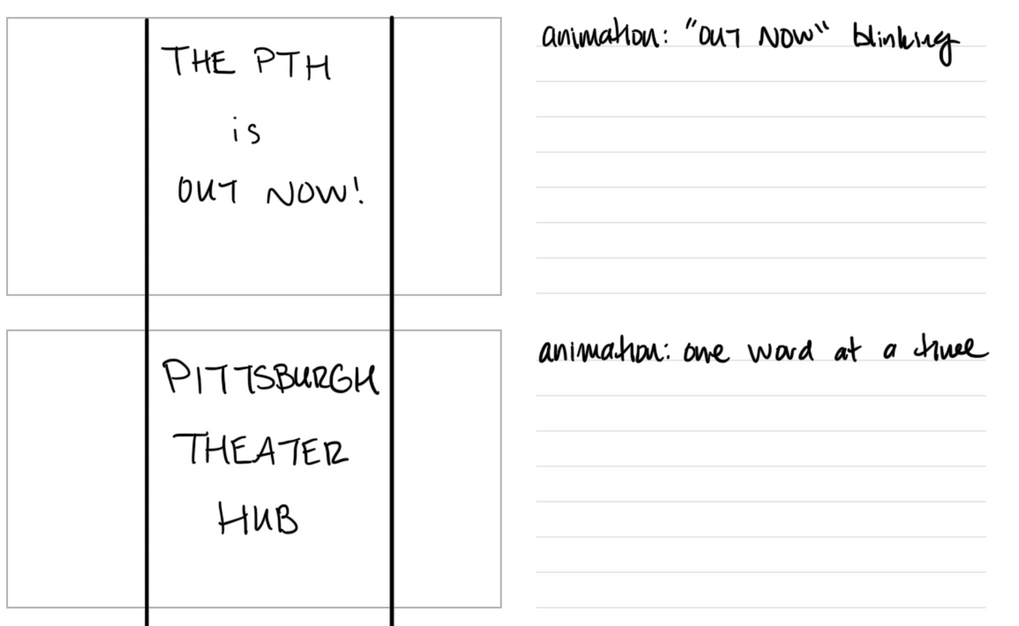 THE PTH
is
OUT NOW!
animation: "OUT NOW" blinking
PITTSBURGH
THEATER
HUB
animation: one word at a time